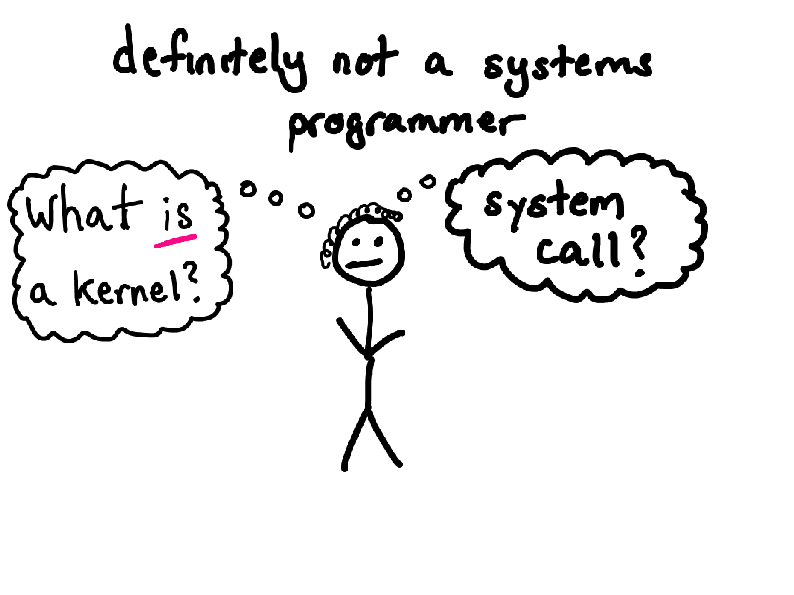 definitely not a systems
programmer
What is
a kernel?
system
call?